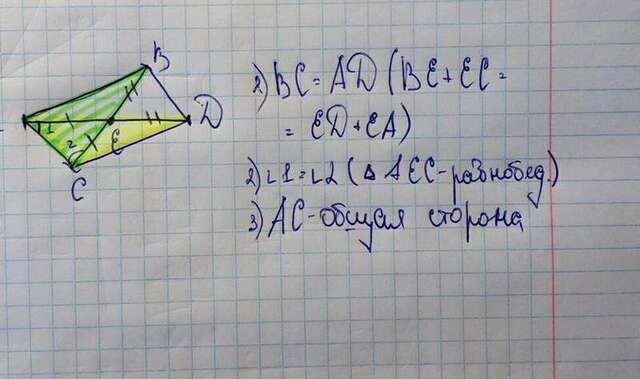 B
1
E
D
2
C
2) BC = AD (BE + EC =
= ED + EA)
2) ∠1 = ∠2 (Δ AEC - равнобед.)
3) AC - общая сторона